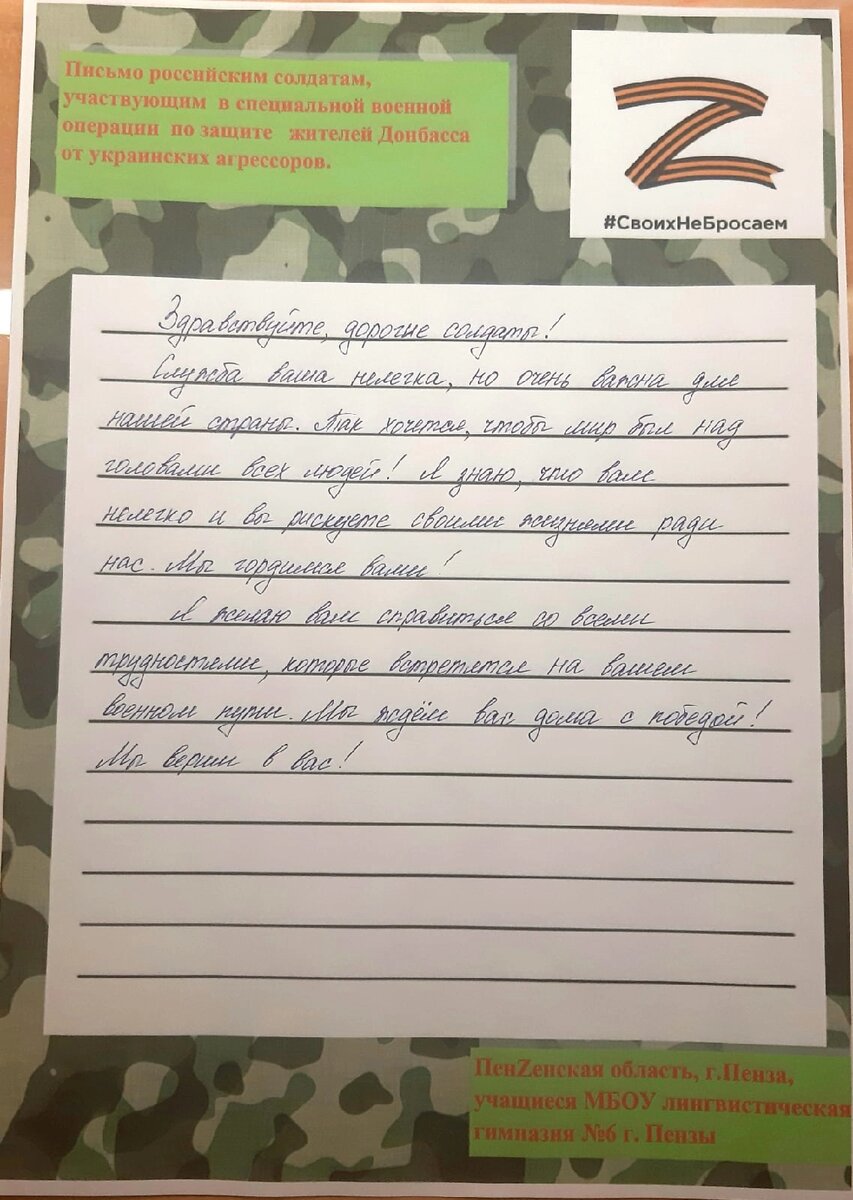 Письмо росснйским солдатам,
участвующим в специальной военной
операции по защите жителей Донбасса
от украинских агрессоров.
#СвоихНеБросаем
Здравствуйте, дорогие солдаты!
Служба ваша нелегка, но очень важна для
нашей страны. Так хочется, чтобы мир был над
головами всех людей! Я знаю, что вам
нелегко и вы рискуете своими жизнями ради
нас. Мы гордимся вами!
Я желаю вам справиться со всеми
трудностями, которые встретятся на вашем
военном пути. Мы ждём вас дома с победой!
Мы верим в вас!
ПенZенская область, г.Пенза,
учащиеся МБОУ лингвистическая
гимназия №6 г. Пензы